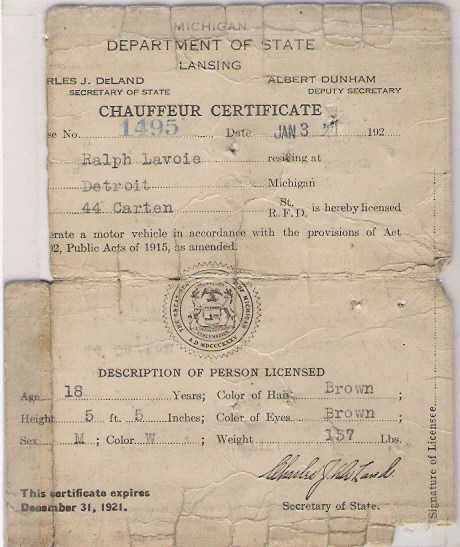 MICHIGAN
DEPARTMENT OF STATE
LANSING
RLES J. DeLAND ALBERT DUNHAM
SECRETARY OF STATE DEPUTY SECRETARY
CHAUFFEUR CERTIFICATE
se No. 1495 Date JAN 3 21 192
Ralph Lavoie residing at
Detroit Michigan
44 Carten St. R.F.D. is hereby licensed
erate a motor vehicle in accordance with the provisions of Act
02, Public Acts of 1915, as amended.
THE GREAT SEAL OF MICHIGAN
A.D MDCCCXXXV
DESCRIPTION OF PERSON LICENSED
Age 18 Years; Color of Hair Brown ;
Height 5 ft. 5 Inches; Color of Eyes Brown ;
Sex M ; Color W ; Weight 137 Lbs.
Charles J. DeLand.
Secretary of State.
This certificate expires
December 31, 1921.
Signature of Licensee